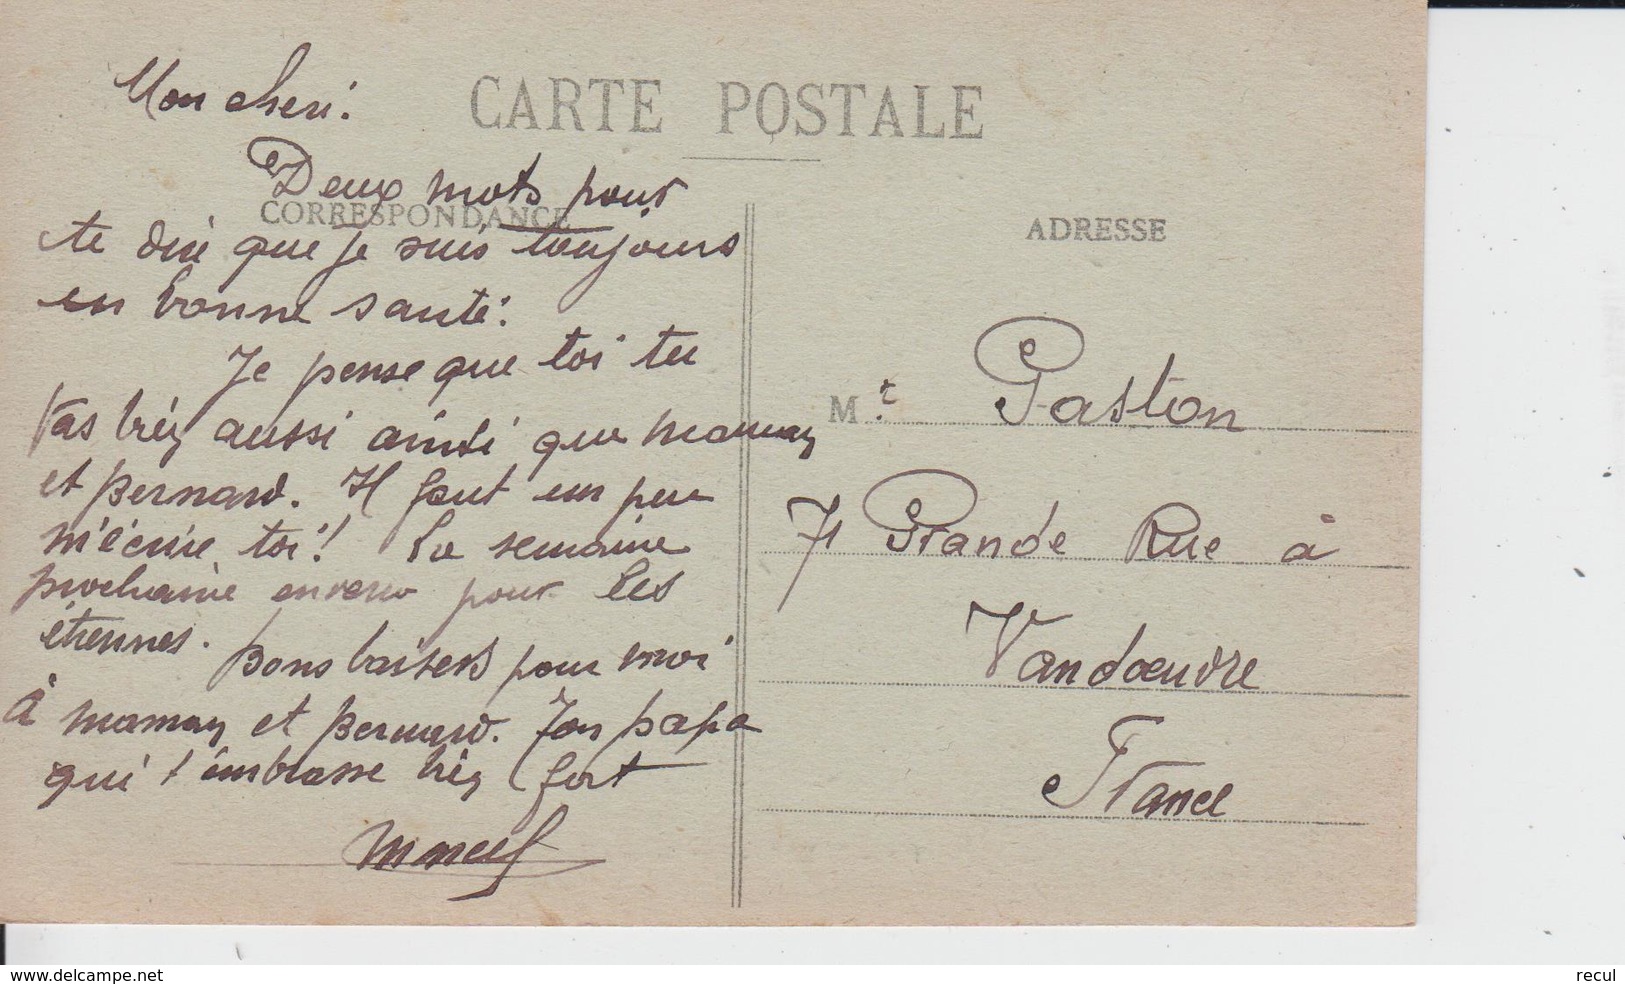 CARTE POSTALE
CORRESPONDANCE
Mon cheri.
Deux mots pour
te dire que je suis toujours
en bonne santé.
Je pense que toi tu
vas très aussi ainsi que maman
et Bernard. Il faut un peu
m'écrire toi! La semaine
prochaine enverrai pour les
étrennes. Bons baisers pour moi
à maman et Bernard. Ton papa
qui t'embrasse très fort
ADRESSE
Mr. Gaston
71 Grande Rue à
Vandœuvre
France
www.delcampe.net
recul